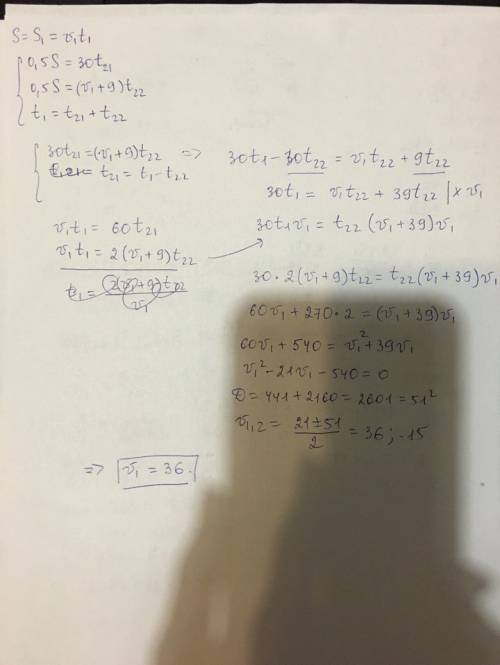 S = S₁ = v₁t₁
0,5S = 30t₂₁
0,5S = (v₁+9)t₂₂
t₁ = t₂₁ + t₂₂
30t₂₁ = (v₁+9)t₂₂ =>
t₂₁ = t₁ - t₂₂
v₁t₁ = 60t₂₁
v₁t₁ = 2(v₁+9)t₂₂
t₁ = 2(v₁+9)t₂₂ / v₁
30t₁ - 30t₂₂ = v₁t₂₂ + 9t₂₂
30t₁ = v₁t₂₂ + 39t₂₂ | × v₁
30t₁v₁ = t₂₂(v₁+39)v₁
30·2(v₁+9)t₂₂ = t₂₂(v₁+39)v₁
60v₁ + 270·2 = (v₁+39)v₁
60v₁ + 540 = v₁² + 39v₁
v₁² - 21v₁ - 540 = 0
D = 441 + 2160 = 2601 = 51²
v₁,₂ = 21±51 / 2 = 36; -15
=> v₁ = 36.